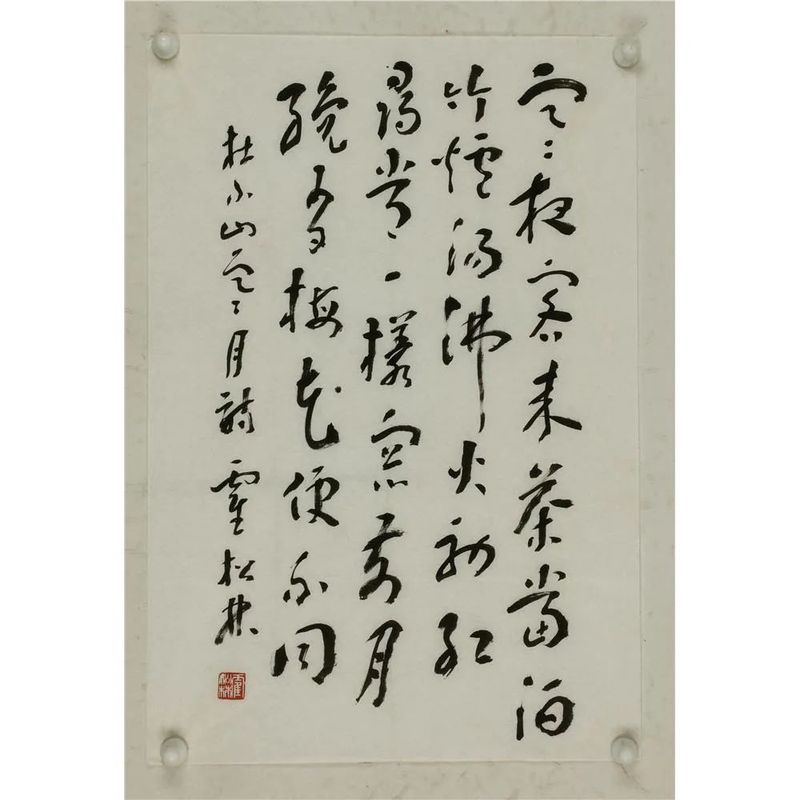 寒夜客来茶當酒
竹爐湯沸火初紅
尋常一樣窗前月
纔有梅花便不同
杜小山寒月詩 霍松林
霍松林